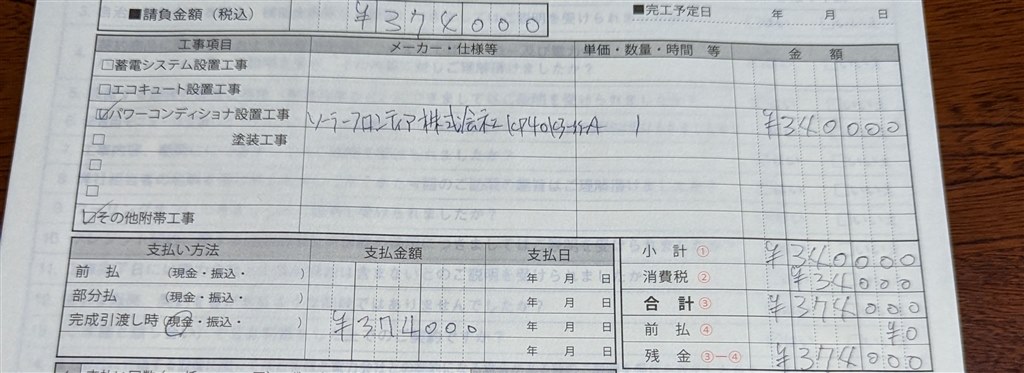 ■請負金額（税込） ¥374000 ■完工予定日 年 月 日
工事項目 メーカー・仕様等 単価・数量・時間 等 金額
□蓄電システム設置工事
□エコキュート設置工事
☑パワーコンディショナ設置工事 ソーラーフロンティア株式会社 1 ¥340000
□ 塗装工事
□
□
☑その他附帯工事
支払い方法 支払金額 支払日
前払 (現金・振込・ ) 年 月 日
部分払 (現金・振込・ ) 年 月 日
完成引渡し時 (現金・振込・ ) ¥374000 年 月 日
年 月 日
小計① ¥340000
消費税② ¥34000
合計③ ¥374000
前払④ ¥0
残金③ー④ ¥374000